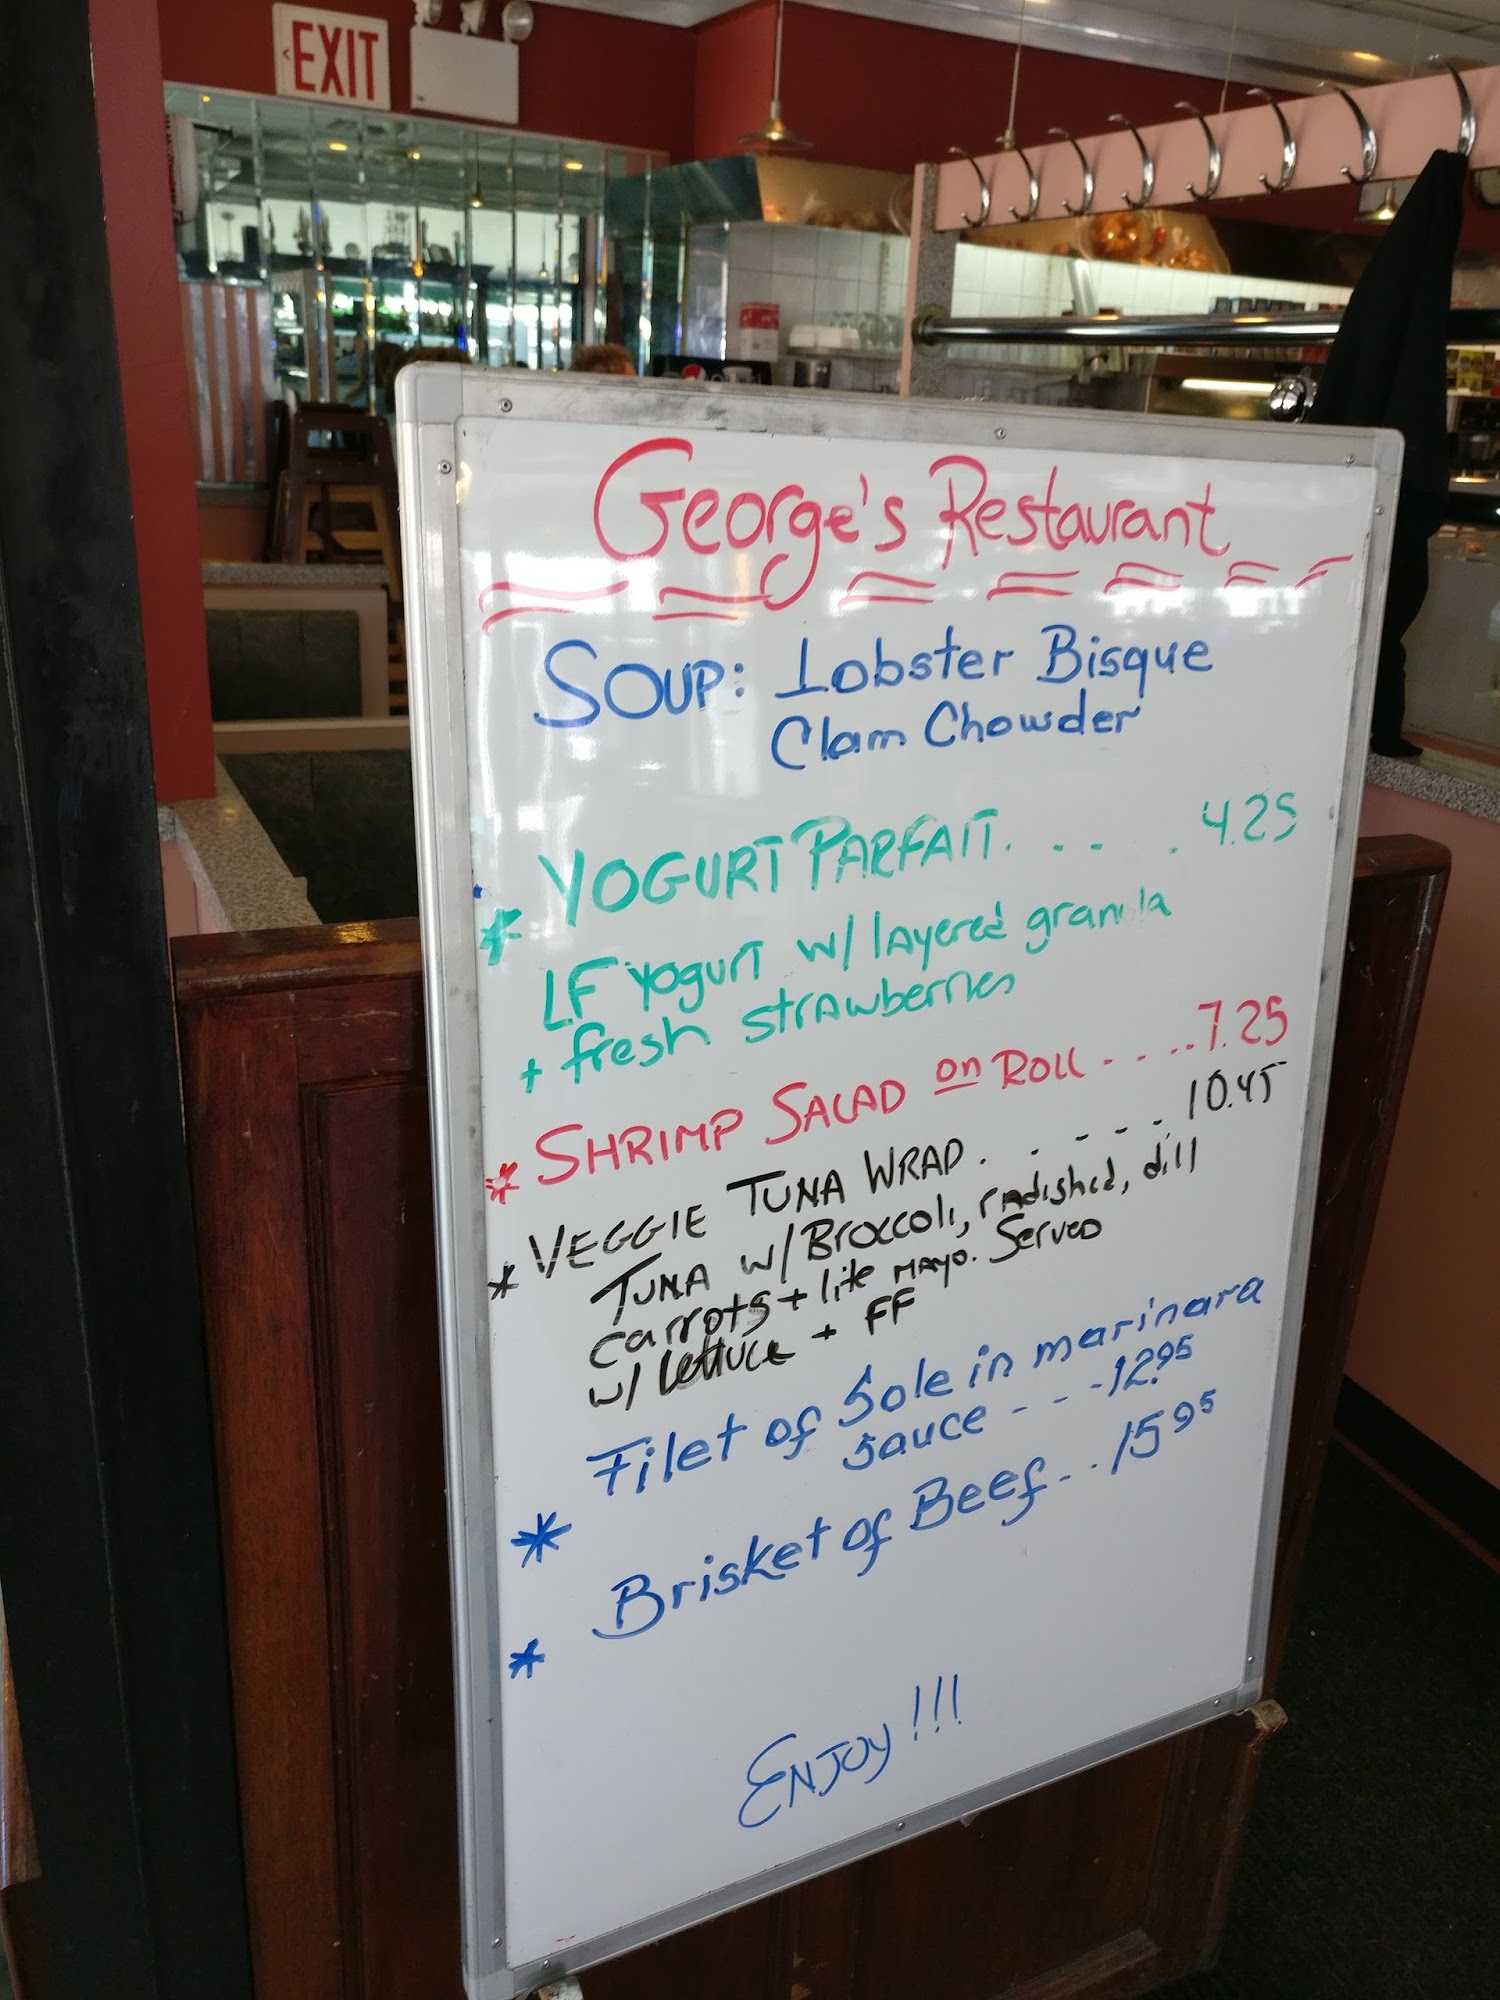 EXIT
George's Restaurant
Soup: Lobster Bisque
Clam Chowder
* YOGURT PARFAIT. . . . . 4.25
LF Yogurt w/ layered granola
+ fresh strawberries
* SHRIMP SALAD on ROLL - - - - - 7.25
* VEGGIE TUNA WRAP . . - - - - 10.45
TUNA w/ Broccoli, radished, dill
carrots + lite mayo. Served
w/ lettuce + FF
* Filet of Sole in marinara
sauce - - - 12.95
* Brisket of Beef - - . 15.95
ENJOY!!!